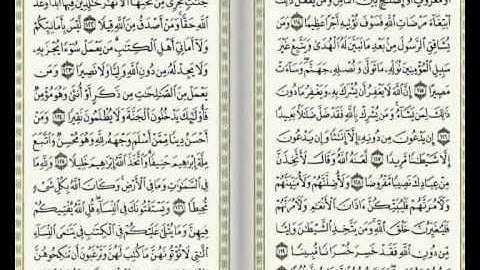 أَوْ مَعْرُوفٍ أَوْ إِصْلَٰحٍۭ بَيْنَ ٱلنَّاسِ وَمَن يَفْعَلْ ذَٰلِكَ
ٱبْتِغَآءَ مَرْضَاتِ ٱللَّهِ فَسَوْفَ نُؤْتِيهِ أَجْرًا عَظِيمًا ١١٤ وَمَن
يُشَاقِقِ ٱلرَّسُولَ مِنۢ بَعْدِ مَا تَبَيَّنَ لَهُ ٱلْهُدَىٰ وَيَتَّبِعْ غَيْرَ
سَبِيلِ ٱلْمُؤْمِنِينَ نُوَلِّهِۦ مَا تَوَلَّىٰ وَنُصْلِهِۦ جَهَنَّمَ وَسَآءَتْ
مَصِيرًا ١١٥ إِنَّ ٱللَّهَ لَا يَغْفِرُ أَن يُشْرَكَ بِهِۦ وَيَغْفِرُ مَا دُونَ
ذَٰلِكَ لِمَن يَشَآءُ وَمَن يُشْرِكْ بِٱللَّهِ فَقَدْ ضَلَّ ضَلَٰلًۢا بَعِيدًا
١١٦ إِن يَدْعُونَ مِن دُونِهِۦٓ إِلَّآ إِنَٰثًا وَإِن يَدْعُونَ
إِلَّا شَيْطَٰنًا مَّرِيدًا ١١٧ لَّعَنَهُ ٱللَّهُ وَقَالَ لَأَتَّخِذَنَّ
مِنْ عِبَادِكَ نَصِيبًا مَّفْرُوضًا ١١٨ وَلَأُضِلَّنَّهُمْ وَلَأُمَنِّيَنَّهُمْ
وَلَءَامُرَنَّهُمْ فَلَيُبَتِّكُنَّ ءَاذَانَ ٱلْأَنْعَٰمِ وَلَءَامُرَنَّهُمْ
فَلَيُغَيِّرُنَّ خَلْقَ ٱللَّهِ وَمَن يَتَّخِذِ ٱلشَّيْطَٰنَ وَلِيًّا
مِّن دُونِ ٱللَّهِ فَقَدْ خَسِرَ خُسْرَانًا مُّبِينًا ١١٩
جَنَّٰتٍ تَجْرِى مِن تَحْتِهَا ٱلْأَنْهَٰرُ خَٰلِدِينَ فِيهَآ أَبَدًا وَعْدَ
ٱللَّهِ حَقًّا وَمَنْ أَصْدَقُ مِنَ ٱللَّهِ قِيلًا ١٢٢ لَّيْسَ بِأَمَانِيِّكُمْ
وَلَآ أَمَانِىِّ أَهْلِ ٱلْكِتَٰبِ مَن يَعْمَلْ سُوٓءًا يُجْزَ بِهِۦ
وَلَا يَجِدْ لَهُۥ مِن دُونِ ٱللَّهِ وَلِيًّا وَلَا نَصِيرًا ١٢٣ وَمَن
يَعْمَلْ مِنَ ٱلصَّٰلِحَٰتِ مِن ذَكَرٍ أَوْ أُنثَىٰ وَهُوَ مُؤْمِنٌ
فَأُو۟لَٰٓئِكَ يَدْخُلُونَ ٱلْجَنَّةَ وَلَا يُظْلَمُونَ نَقِيرًا ١٢٤ وَمَنْ
أَحْسَنُ دِينًا مِّمَّنْ أَسْلَمَ وَجْهَهُۥ لِلَّهِ وَهُوَ مُحْسِنٌ وَٱتَّبَعَ
مِلَّةَ إِبْرَٰهِيمَ حَنِيفًا وَٱتَّخَذَ ٱللَّهُ إِبْرَٰهِيمَ خَلِيلًا ١٢٥ وَلِلَّهِ مَا
فِى ٱلسَّمَٰوَٰتِ وَمَا فِى ٱلْأَرْضِ وَكَانَ ٱللَّهُ بِكُلِّ شَىْءٍ
مُّحِيطًا ١٢٦ وَيَسْتَفْتُونَكَ فِى ٱلنِّسَآءِ قُلِ ٱللَّهُ يُفْتِيكُمْ
فِيهِنَّ وَمَا يُتْلَىٰ عَلَيْكُمْ فِى ٱلْكِتَٰبِ فِى يَتَٰمَى ٱلنِّسَآءِ
ٱلَّٰتِى لَا تُؤْتُونَهُنَّ مَا كُتِبَ لَهُنَّ وَتَرْغَبُونَ أَن تَنكِحُوهُنَّ